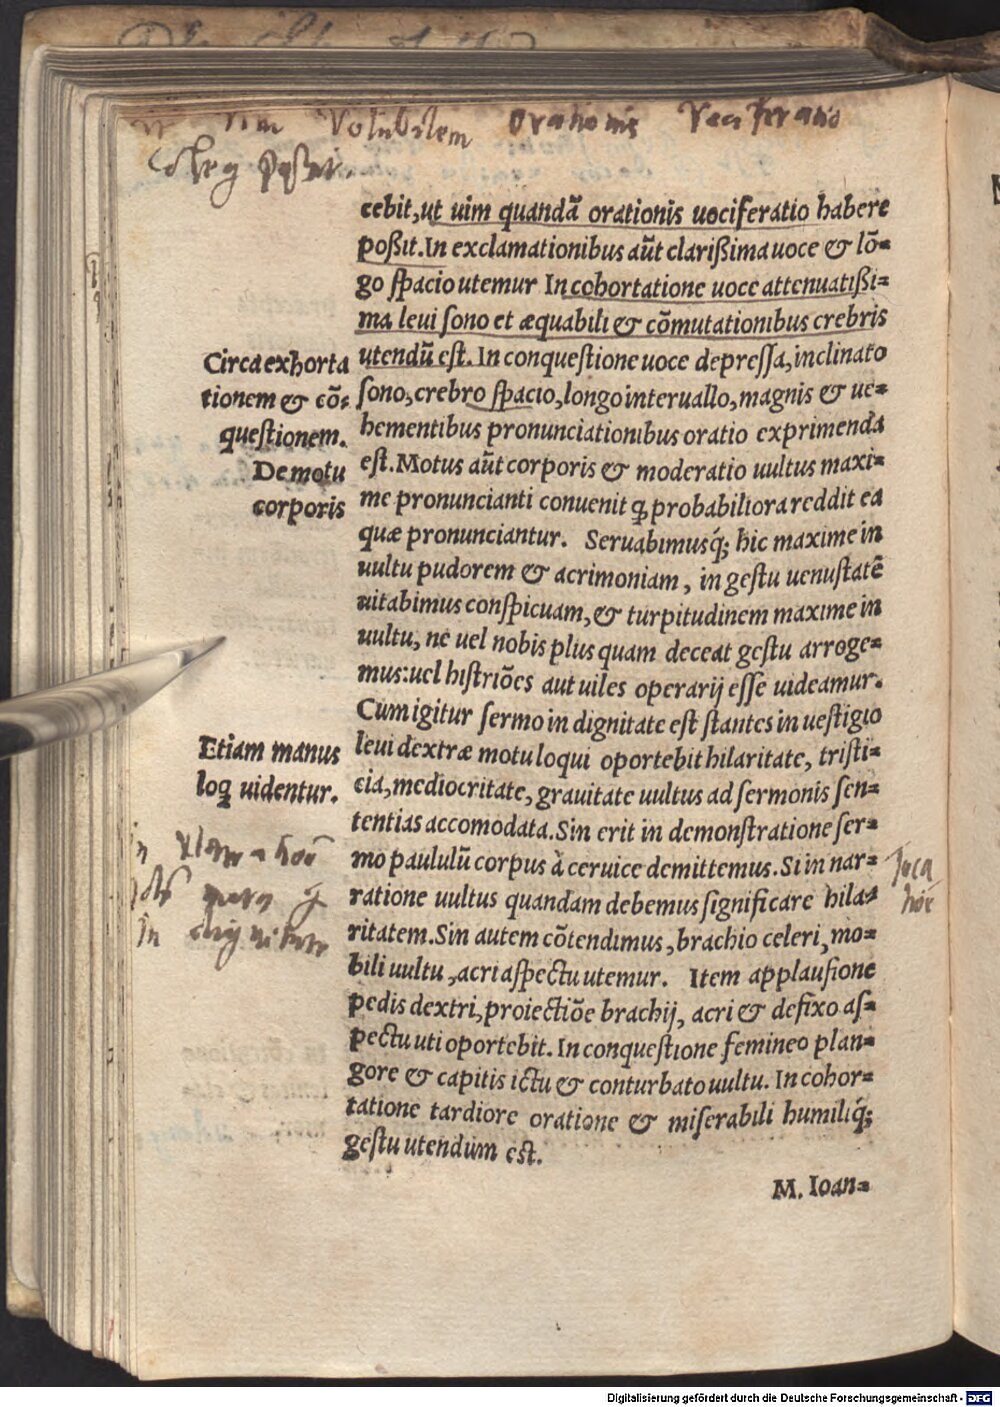 Volubilem Orationis Vociferatio
cebit, ut uim quandã orationis uociferatio habere
poßit. In exclamationibus aũt clarißima uoce & lõ=
go ſpacio utemur In cohortatione uoce attenuatißi=
ma leui ſono et æquabili & cõmutationibus crebris
utendũ eſt. In conqueſtione uoce depreſſa, inclinato
ſono, crebro ſpacio, longo interuallo, magnis & ue=
hementibus pronunciationibus oratio exprimenda
eſt. Motus aũt corporis & moderatio uultus maxi=
me pronuncianti conuenit ꝗ probabiliora reddit ea
quæ pronunciantur. Seruabimusq́; hic maxime in
uultu pudorem & acrimoniam, in geſtu uenuſtatẽ
uitabimus conſpicuam, & turpitudinem maxime in
uultu, ne uel nobis plus quam deceat geſtu arroge=
mus: uel hiſtriões aut uiles operarij eſſe uideamur.
Cum igitur ſermo in dignitate eſt ſtantes in ueſtigio
leui dextræ motu loqui oportebit hilaritate, triſti=
cia, mediocritate, grauitate uultus ad ſermonis ſen=
tentias accomodata. Sin erit in demonſtratione ſer=
mo paululũ corpus à ceruice demittemus. Si in nar=
ratione uultus quandam debemus ſignificare hila=
ritatem. Sin autem cõtendimus, brachio celeri, mo=
bili uultu, acri aſpectu utemur. Item applauſione
pedis dextri, proiectiõe brachij, acri & defixo aſ=
pectu uti oportebit. In conqueſtione femineo plan=
gore & capitis ictu & conturbato uultu. In cohor=
tatione tardiore oratione & miſerabili humiliq́;
geſtu utendum eſt.
M. Ioan=
Circa exhorta
tionem & cõ=
queſtionem.
De motu
corporis
Etiam manus
loꝗ uidentur.
Digitalisierung gefördert durch die Deutsche Forschungsgemeinschaft - DFG